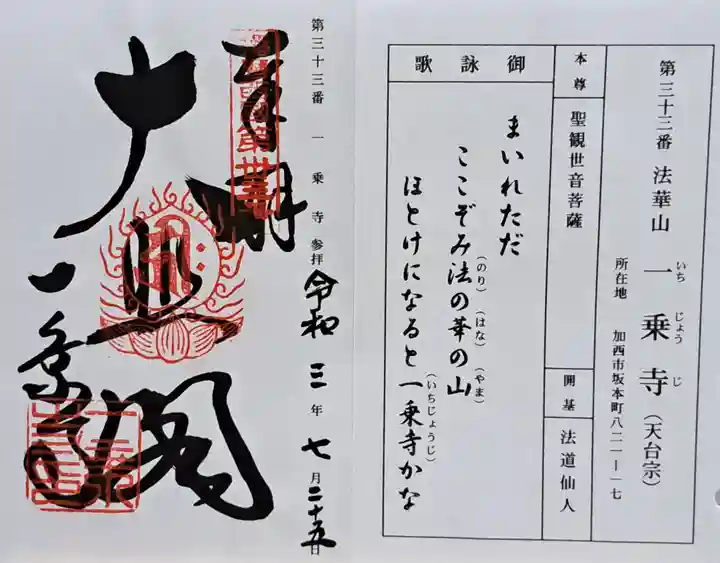 第三十三番 法華山 一乗寺(天台宗)
いち じょう じ
所在地 加西市坂本町八二一―一七
本尊 聖観世音菩薩
開基 法道仙人
御詠歌
まいれただ
ここぞみ法の華の山
(のり) (はな) (やま)
ほとけになると一乗寺かな
(いちじょうじ)
第三十三番 一乗寺参拝 令和三年七月二十五日
奉拝
大悲閣
一乗寺